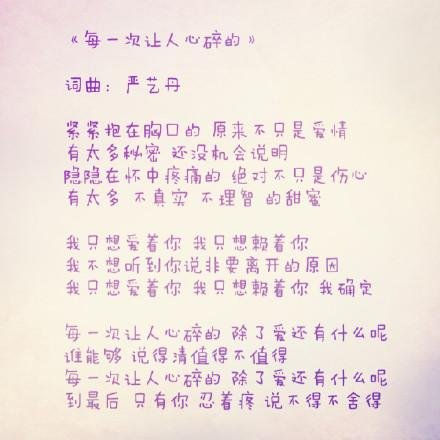 《每一次让人心碎的》
词曲：严艺丹
紧紧抱在胸口的 原来不只是爱情
有太多秘密 还没机会说明
隐隐在怀中疼痛的 绝对不只是伤心
有太多 不真实 不理智 的甜蜜
我只想爱着你 我只想赖着你
我不想听到你说非要离开的原因
我只想爱着你 我只想赖着你 我确定
每一次让人心碎的 除了爱还有什么呢
谁能够 说得清值得不值得
每一次让人心碎的 除了爱还有什么呢
到最后 只有你 忍着疼 说不得不舍得